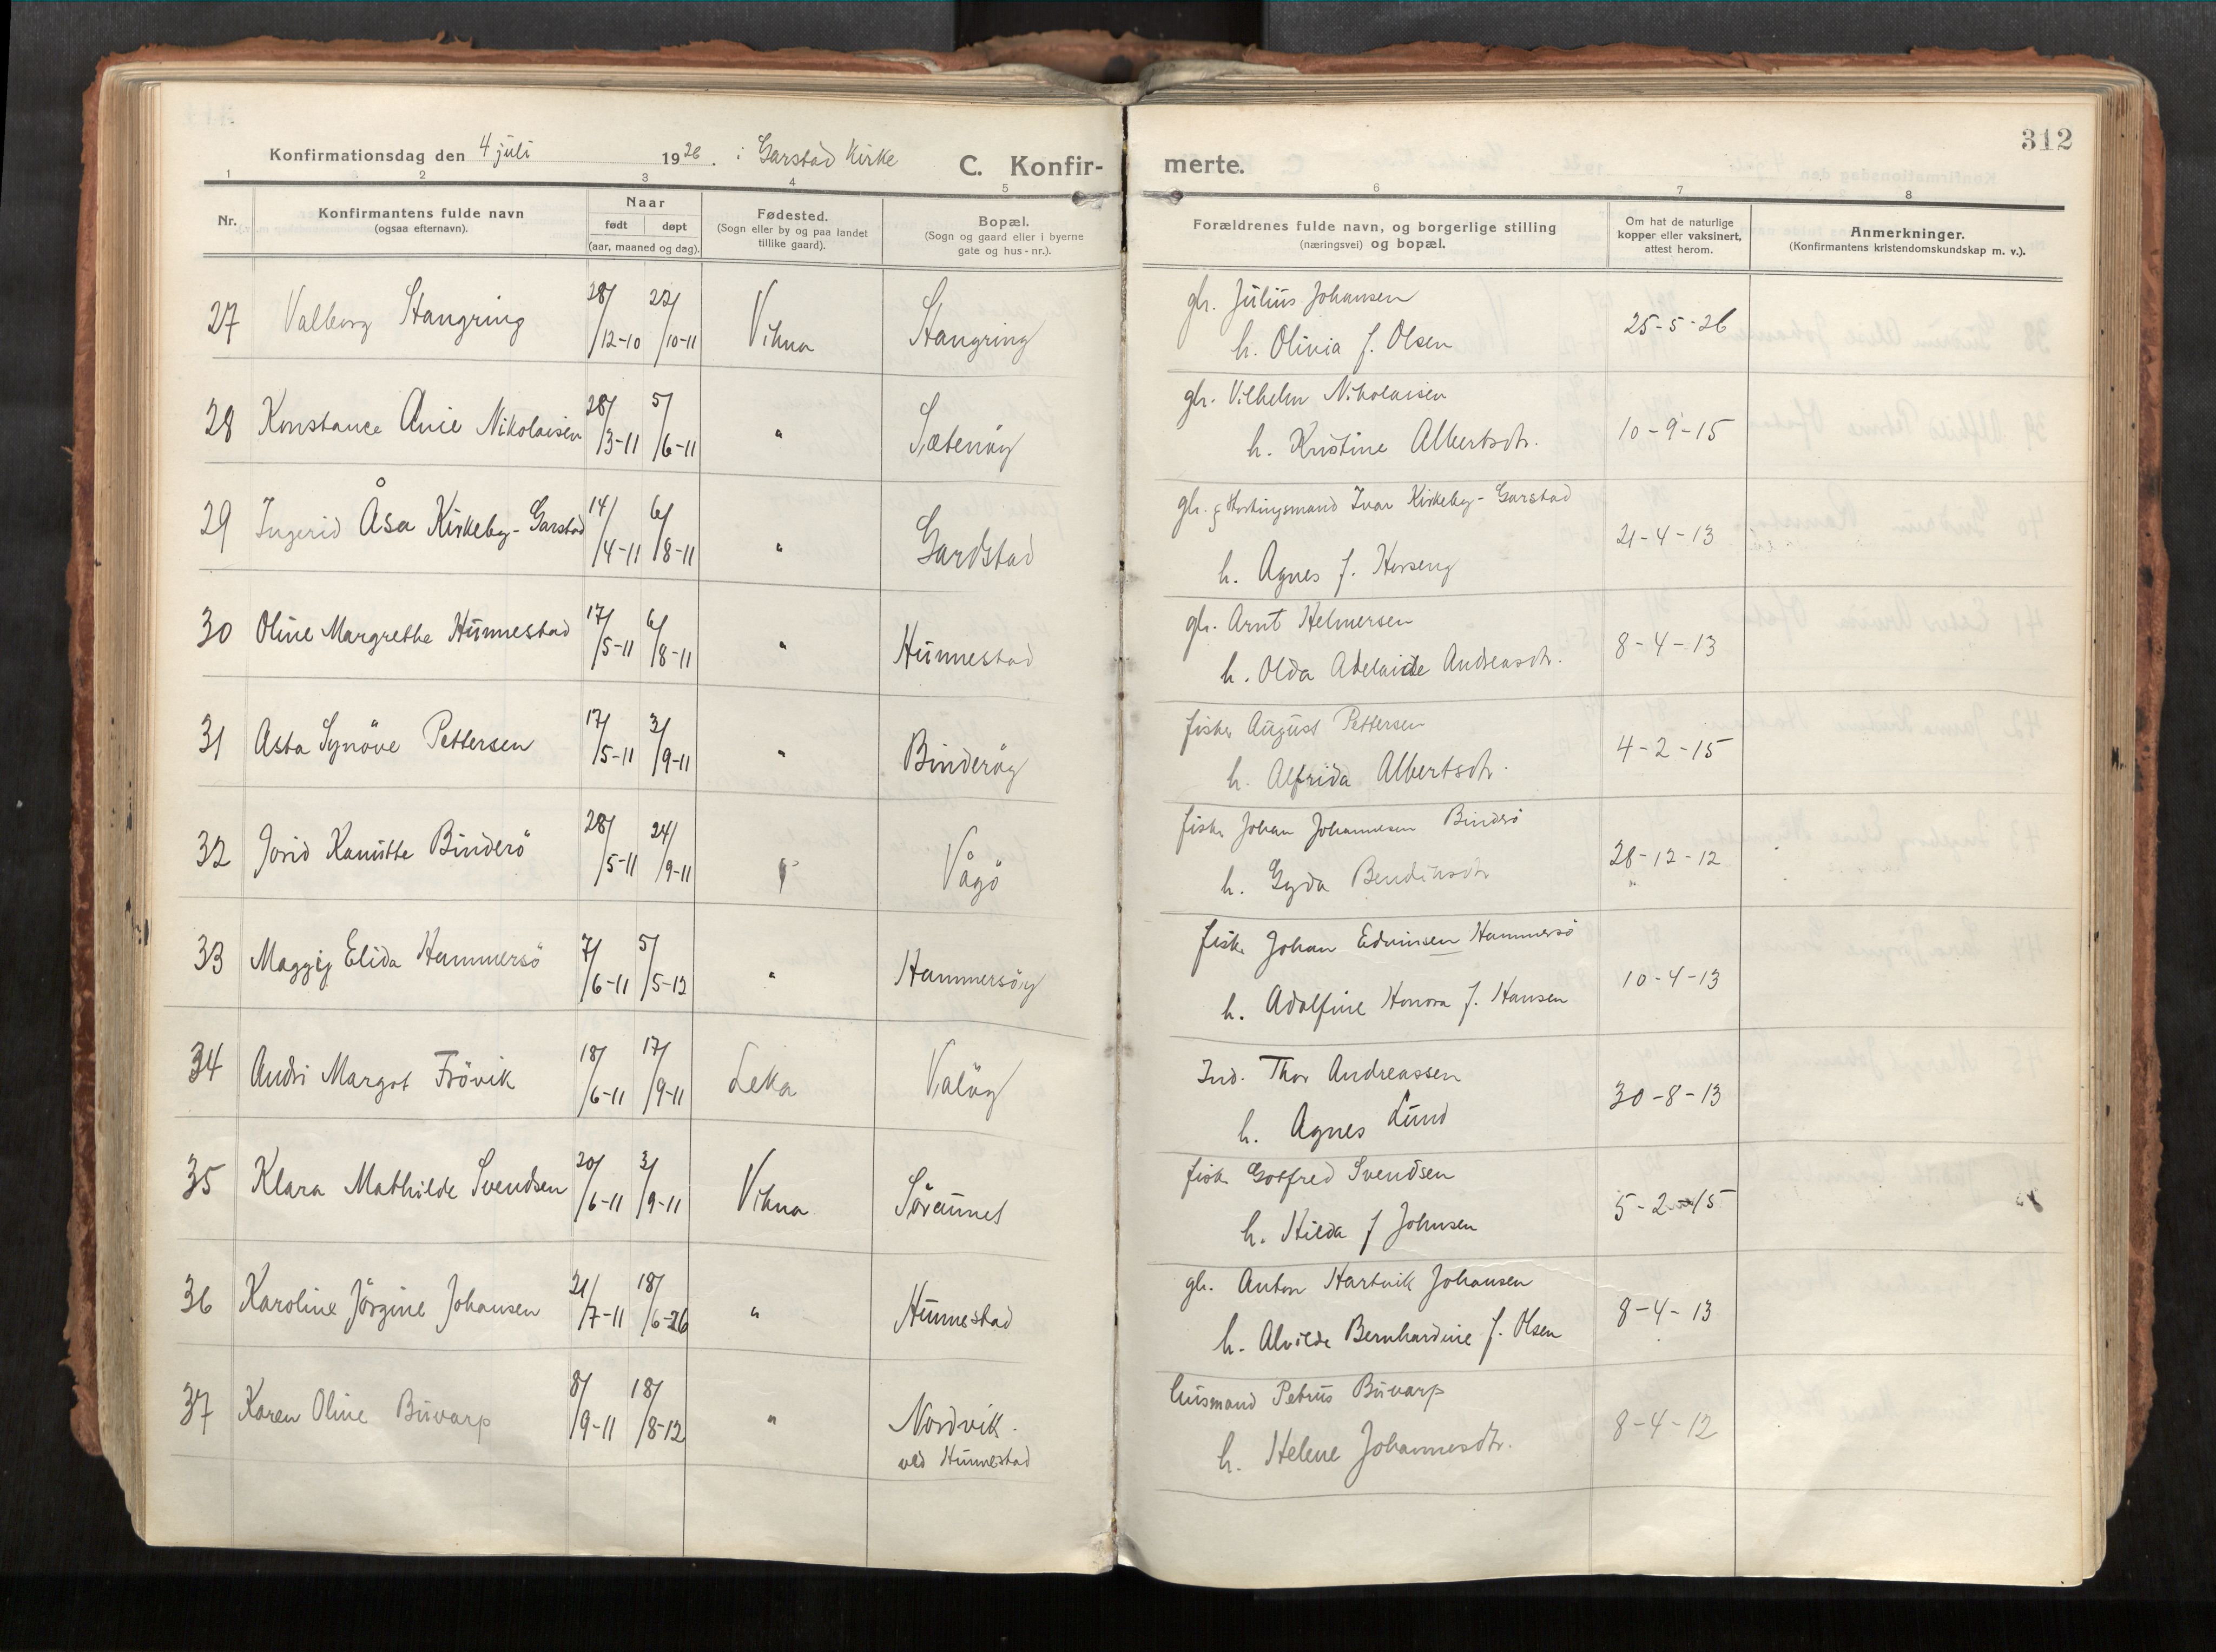 312
Konfirmationsdag den 4 juli 1926. i Garstad Kirke
C. Konfir-merte.
1 2 3 4 5 6 7 8
Nr.
Konfirmantens fulde navn
(ogsaa efternavn).
Naar
født døpt
(aar, maaned og dag).
Fødested.
(Sogn eller by og paa landet
tillike gaard).
Bopæl.
(Sogn og gaard eller i byerne
gate og hus-nr.).
Forældrenes fulde navn, og borgerlige stilling
(næringsvei) og bopæl.
Om hat de naturlige
kopper eller vaksinert,
attest herom.
Anmerkninger.
(Konfirmantens kristendomskundskap m. v.).
27 Valborg Stangring 28/12-10 22/10-11 Vikna Stangring
gbr. Julius Johansen
h. Olivia f. Olsen
25-5-26
28 Konstance Anie Nikolaisen 28/3-11 5/6-11 " Sætenöy
gbr. Vilhelm Nikolaisen
h. Kristine Albertsdtr.
10-9-15
29 Ingerid Åsa Kirkeby-Garstad 14/4-11 6/8-11 " Gardstad
gbr. g Stortingsmand Ivar Kirkeby-Garstad
h. Agnes f. Horseng
21-4-13
30 Oline Margrethe Hunnestad 17/5-11 6/8-11 " Hunnestad
gbr. Arnt Helmersen
h. Olda Adelaide Andreasdtr.
8-4-13
31 Asta Synöve Pettersen 17/5-11 3/9-11 " Binderöy
fisker August Pettersen
h. Alfrida Albertsdtr.
4-2-15
32 Jorid Kamitte Binderö 28/5-11 24/9-11 " Vågö
fisker Johan Johannesen Binderö
h. Gyda Bendiksdtr
28-12-12
33 Maggiy Elida Hammersö 7/6-11 5/5-12 " Hammersöy
fisk. Johan Edvinsen Hammersö
h. Adolfine Honora f. Hansen
10-4-13
34 Audri Margot Frövik 18/6-11 17/9-11 Leka Valöy
Ind. Thor Andreassen
h. Agnes Lund
30-8-13
35 Klara Mathilde Svendsen 20/6-11 3/9-11 Vikna Söraunet
fisk. Gotfred Svendsen
h. Hilda f Johnsen
5-2-15
36 Karoline Jörgine Johansen 21/7-11 18/6-26 " Hunnestad
gbr. Anton Hartvik Johansen
h. Alvilde Bernhardine f. Olsen
8-4-13
37 Karen Oline Buvarp 8/9-11 18/8-12 " Nordvik.
ved Hunnestad
husmand Petrus Buvarp
h. Helene Johannesdtr.
8-4-12